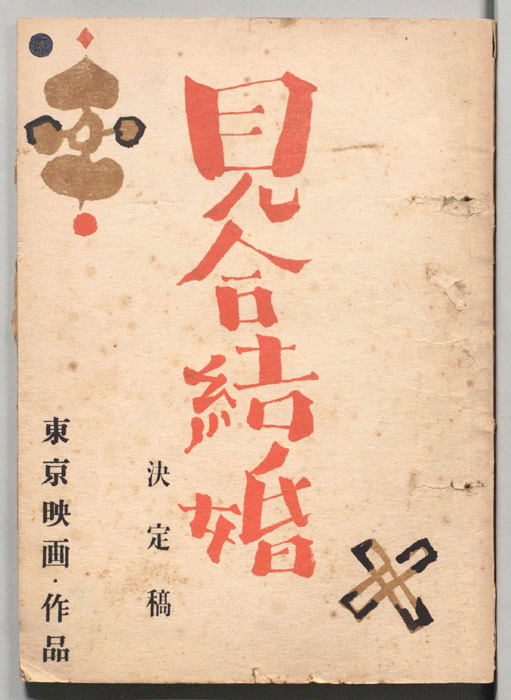 見合結婚
決定稿
東京映画・作品